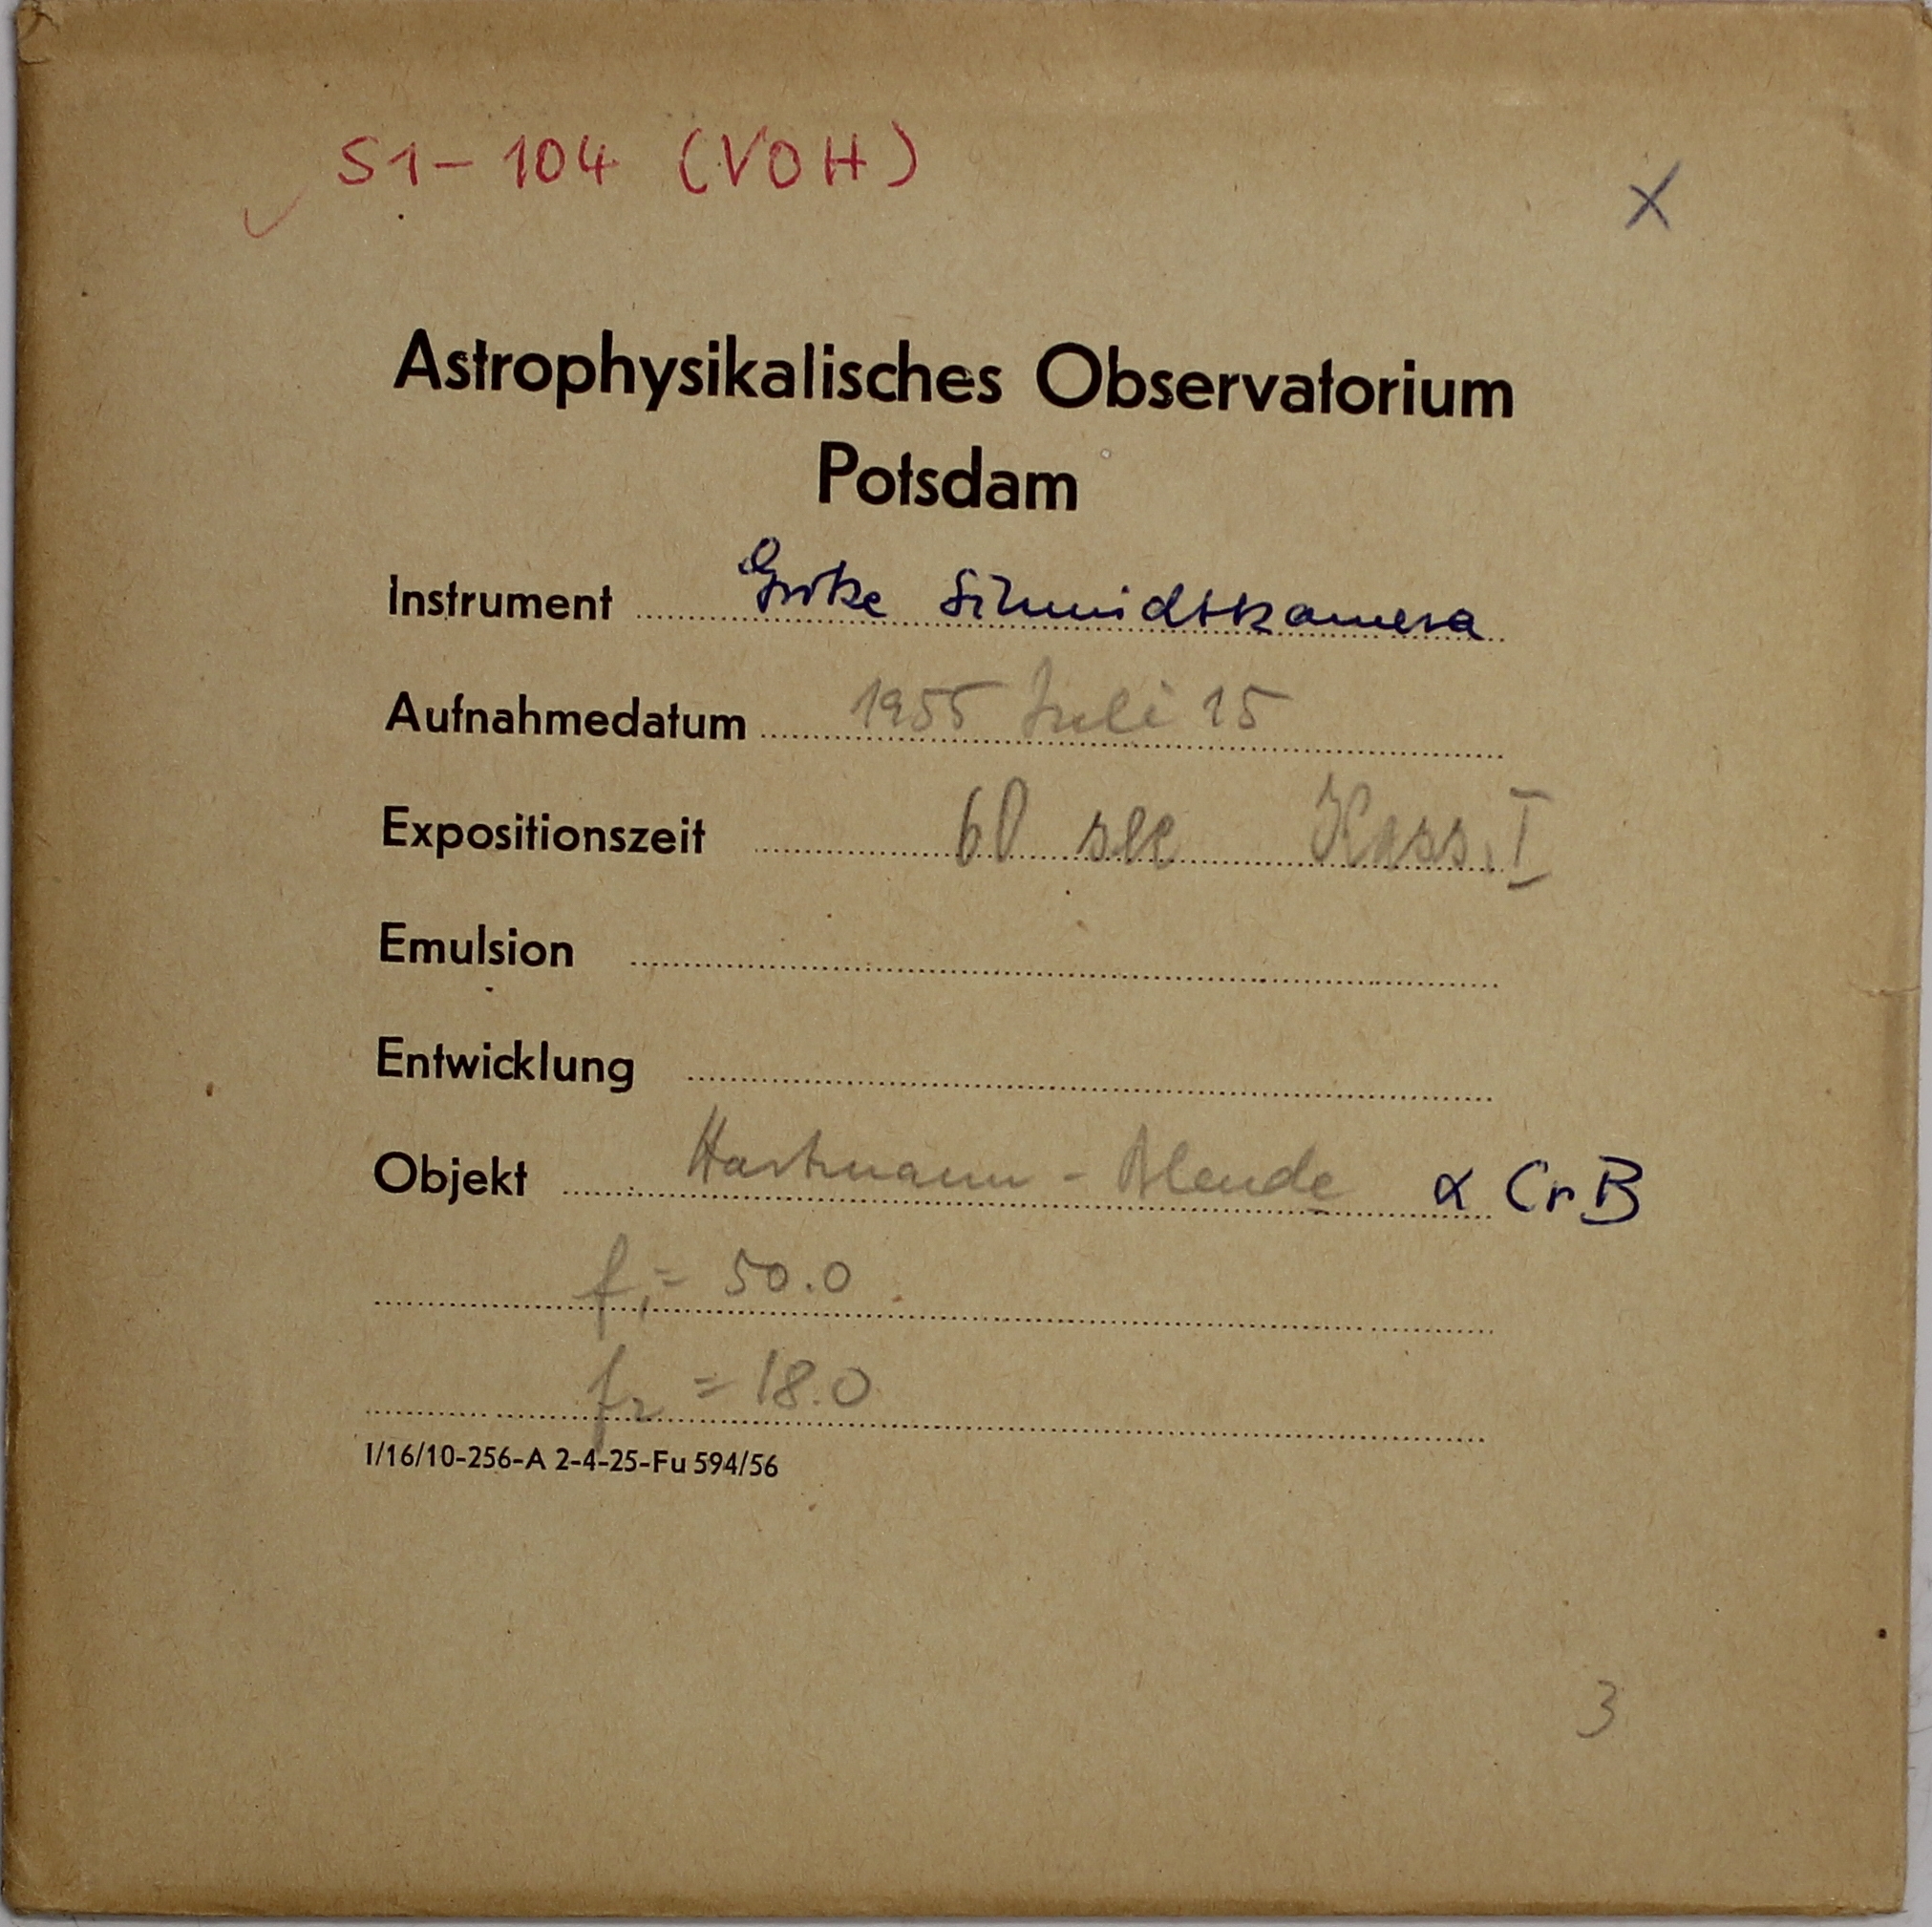 S1- 104 (VOH)
X
Astrophysikalisches Observatorium
Potsdam
Instrument Große Schmidtkamera
Aufnahmedatum 1955 Juli 15
Expositionszeit 60 sec Kass. I
Emulsion
Entwicklung
Objekt Hartmann - Blende α CrB
f₁= 50.0
f₂ = 18.0
I/16/10-256-A 2-4-25-Fu 594/56
3